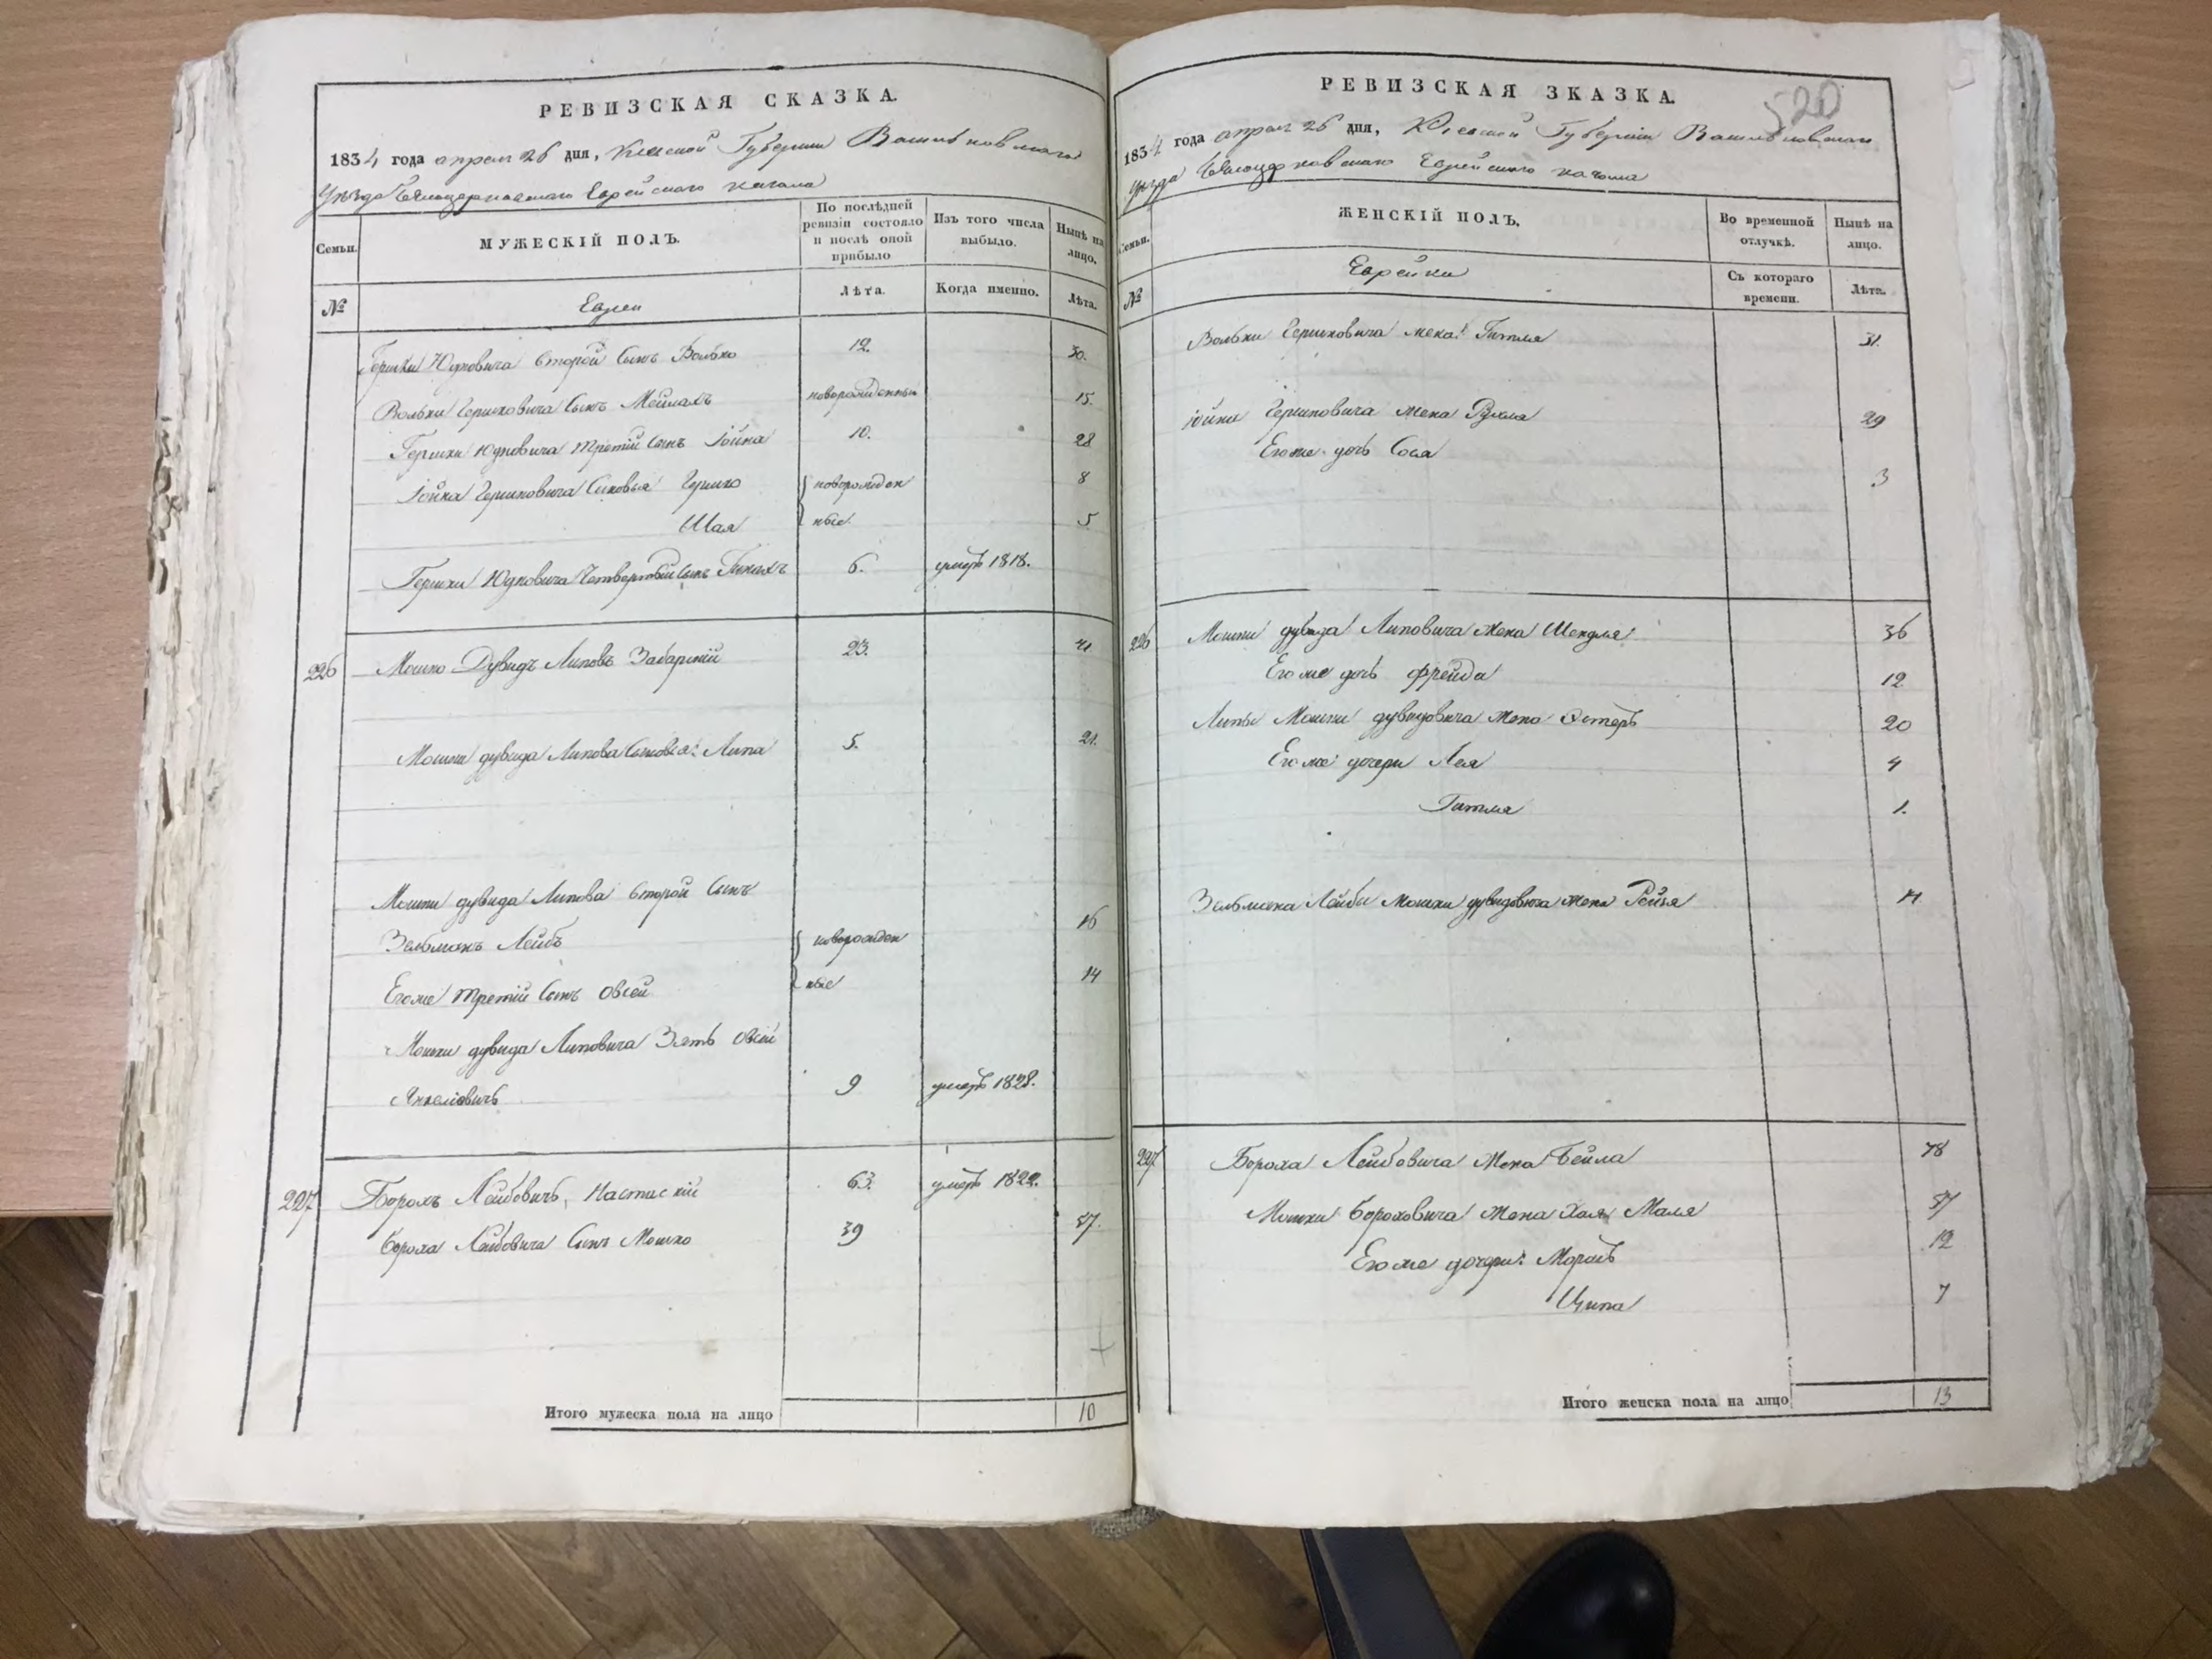 РЕВИЗСКАЯ СКАЗКА.
1834 года апреля 26 дня, Киевской Губернии Васильковскаго
Уезда Белоцерковскаго Еврейскаго кагала
Семьи.
МУЖЕСКІЙ ПОЛЪ.
По послѣдней ревизіи состояло и послѣ оной прибыло
Изъ того числа выбыло.
Нынѣ на лицо.
№
Евреи
Лѣта.
Когда именно.
Лѣта.
Гершки Юдковича второй сынъ Волько 12. 30.
Вольки Гершковича сынъ Мейлахъ новорожденный 15.
Гершки Юдковича третій сынъ Іойна 10. 28
Іойна Гершковича сыновья Гершко новорожден 8
Шая ные. 5
Гершки Юдковича Четвертый сынъ Пинахъ 6. умеръ 1818.
226 Мошко Дувидъ Липовъ Забарскій 23. 41
Мошки дувида Липова сыновья: Липа 5. 21.
Мошки дувида Липова второй сынъ
Зельманъ Лейбъ новорожден 16
Егоже третій сынъ Овсей ные 14
Мошки дувида Липовича Зять Овсій
Янкеліовичъ 9 умеръ 1828.
227 Борохъ Лейбовичъ, 63. умеръ 1822.
Бороха Лейбовича сынъ Мошко 39 57.
Итого мужеска пола на лицо 10
РЕВИЗСКАЯ ЗКАЗКА.
520
1834 года апреля 26 дня, Киевской Губерніи Васильковскаго
Уезда Белоцерковскаго Еврейскаго кагала
Семьи.
ЖЕНСКІЙ ПОЛЪ.
Во временной отлучкѣ.
Нынѣ на лицо.
№
Еврейки
Съ котораго времени.
Лѣта.
Вольки Гершковича жена: Гитля 31.
Іойни Гершковича жена Рухля 29
Егоже дочь Сося 3
226 Мошки дувида Липовича жена Шендля: 36
Егоже дочь фрейда 12
Липы Мошки дувидовича жена Эстеръ 20
Егоже дочери Лея 4
Гитля 1.
Зельмана Лейбы Мошки дувидовича жена Рейзя
227 Бороха Лейбовича жена Бейла 78
Мошки Бороховича жена Хая Маля 57
Егоже дочери: 12
Ципа 7
Итого женска пола на лицо 13